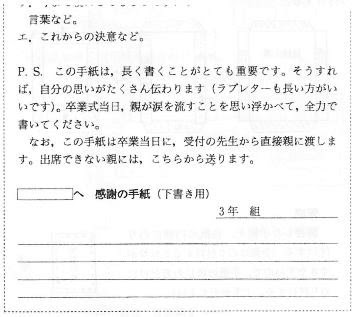 言葉など。
エ．これからの決意など。
P．S． この手紙は，長く書くことがとても重要です。そうすれ
ば，自分の思いがたくさん伝わります（ラブレターも長い方がい
いです）。卒業式当日，親が涙を流すことを思い浮かべて，全力で
書いてください。
なお，この手紙は卒業当日に，受付の先生から直接親に渡しま
す。出席できない親には，こちらから送ります。
へ 感謝の手紙（下書き用）
3年 組